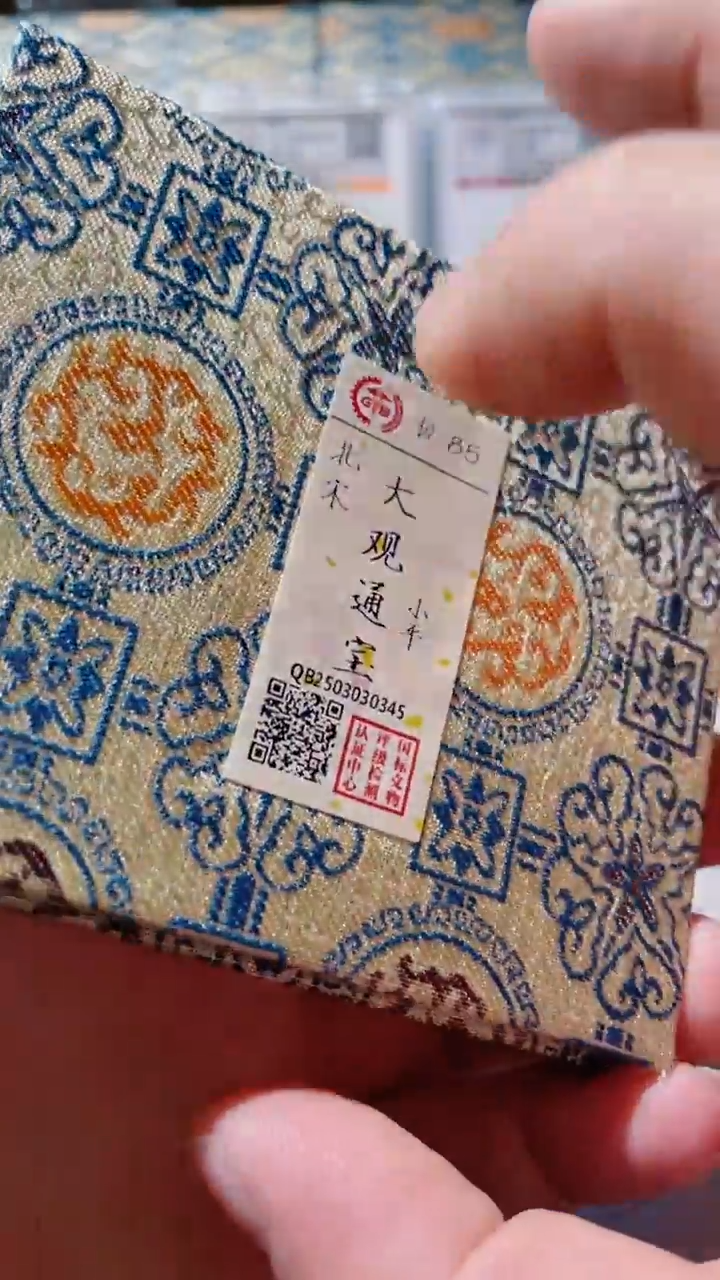 85
北宋
大观通宝
小平
QB2503030345
国标文物
评级检测
认证中心